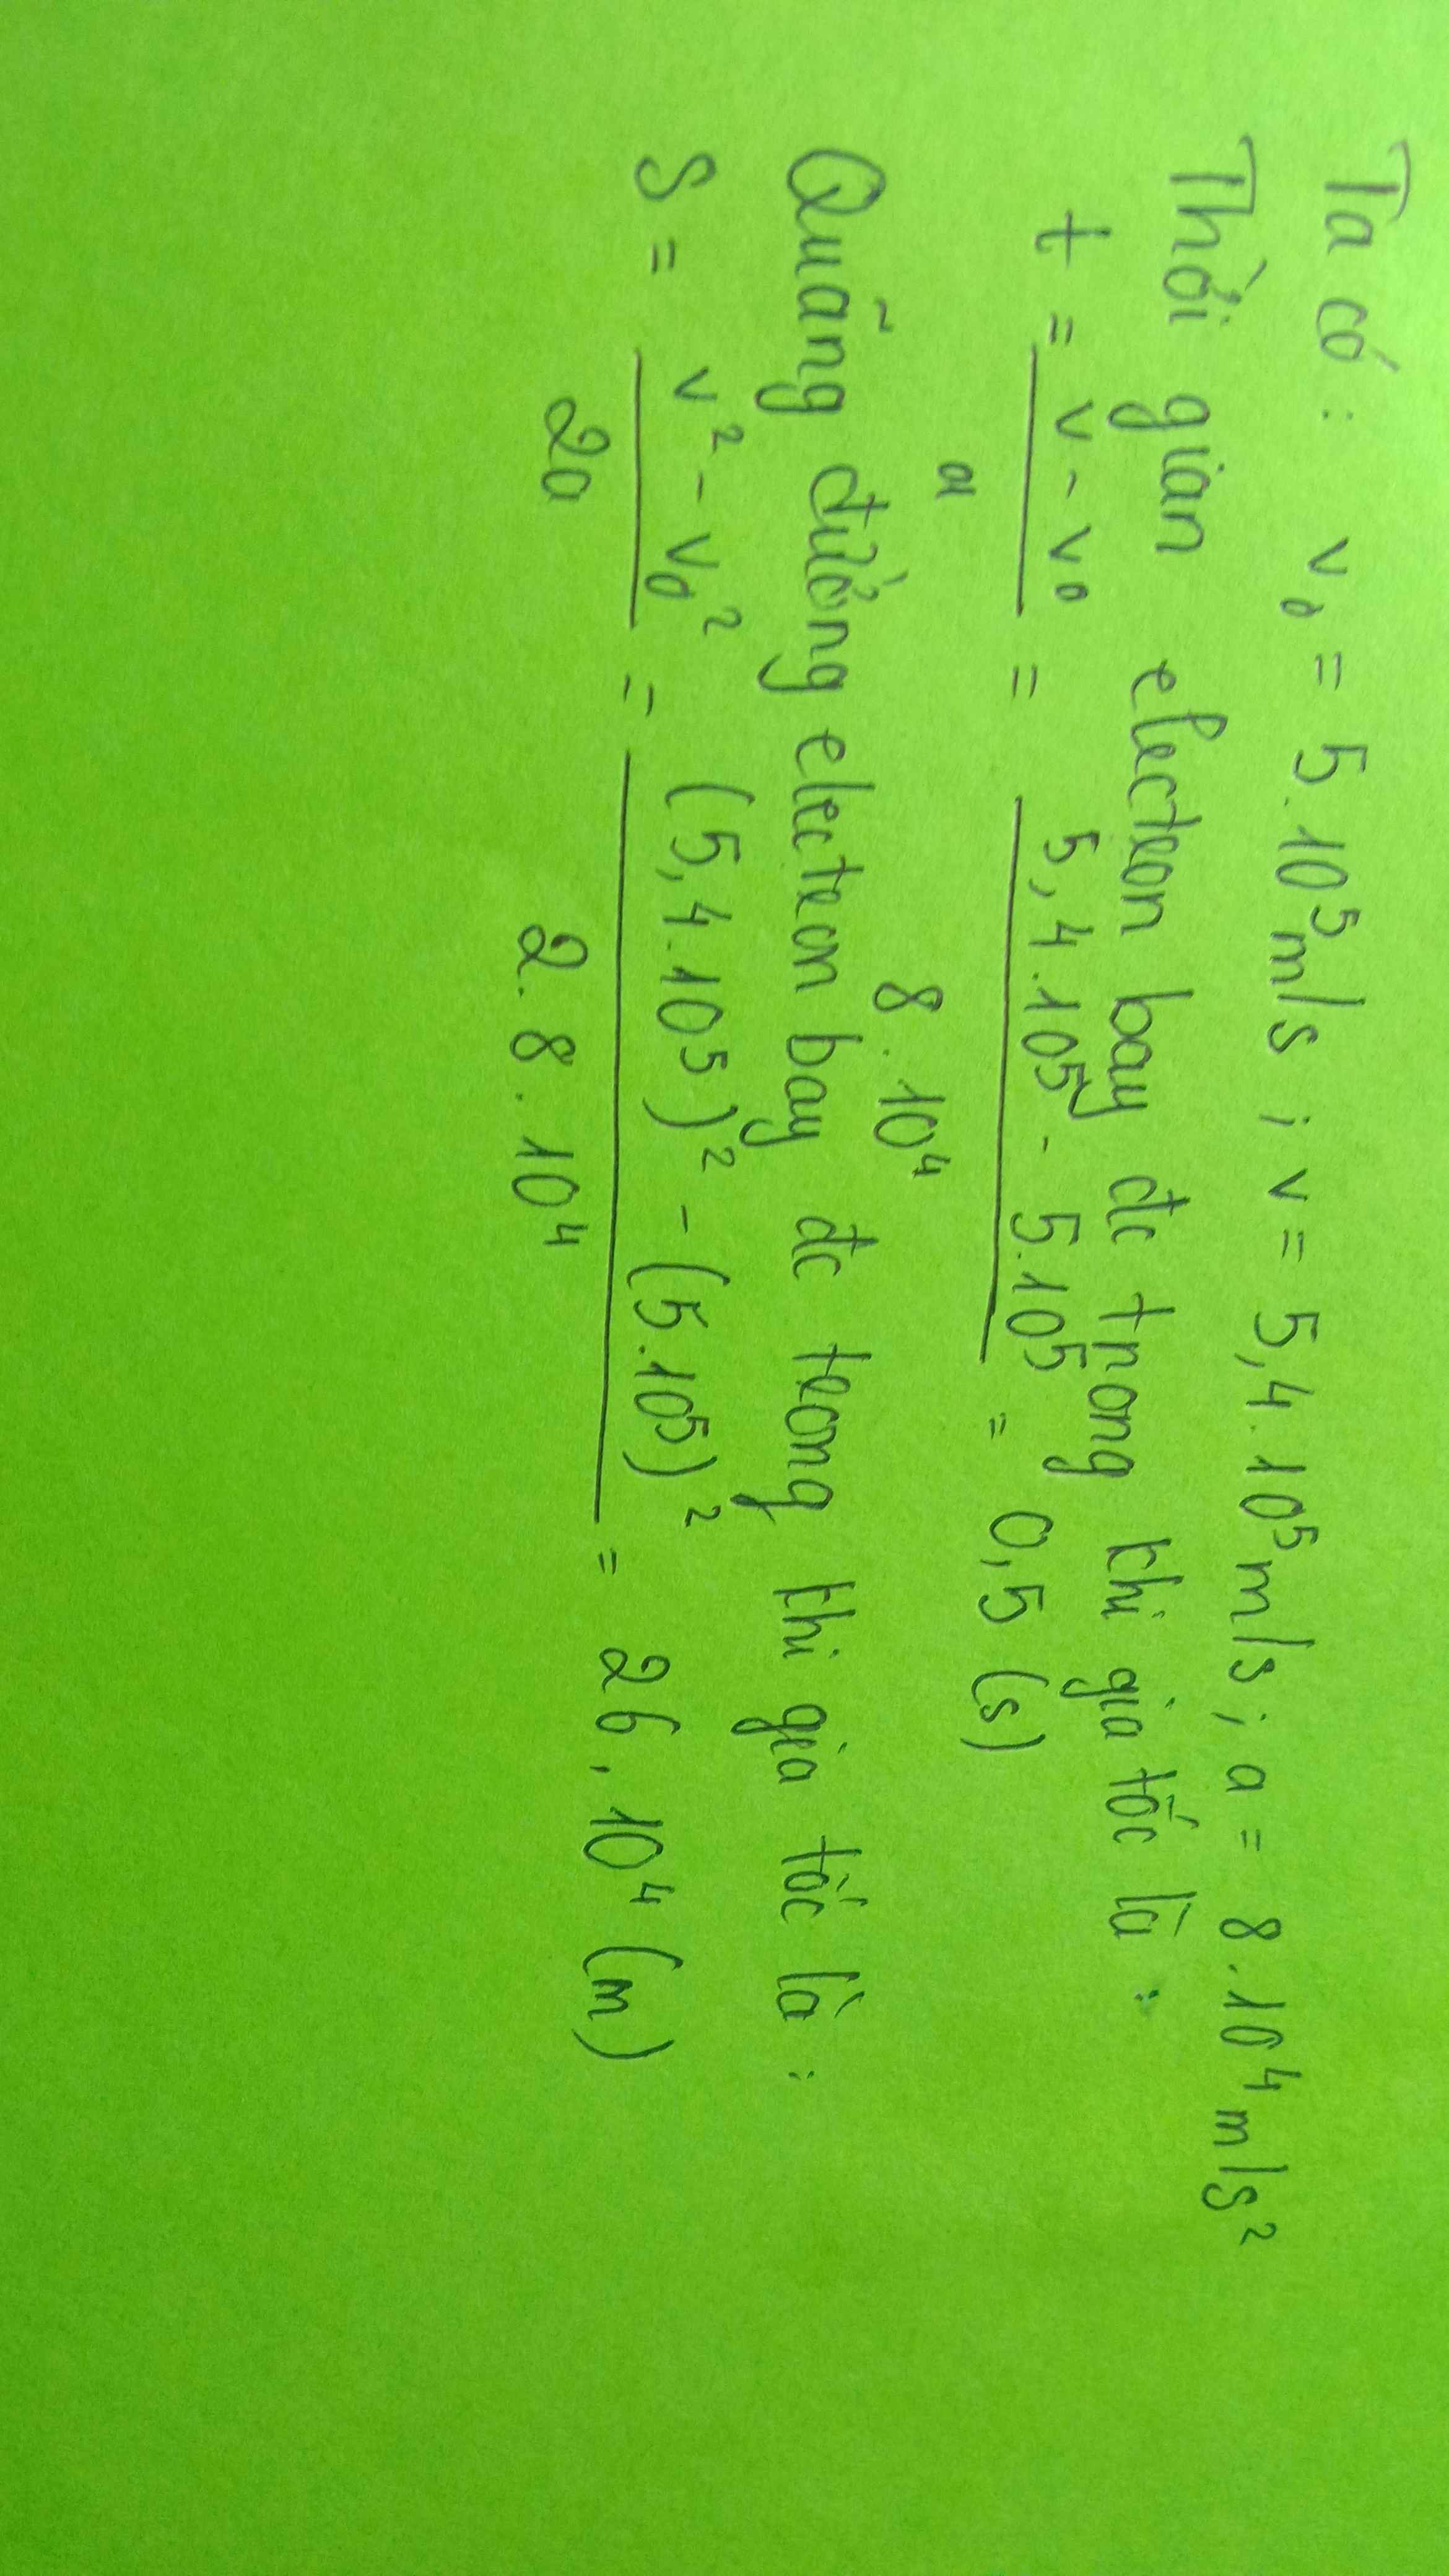 Ta có: v₀ = 5.10⁵m/s; v = 5,4.10⁵m/s; a = 8.10⁴m/s²
Thời gian electron bay đc trong khi gia tốc là:
t = (v - v₀)/a = (5,4.10⁵ - 5.10⁵)/(8.10⁴) = 0,5 (s)
Quãng đường electron bay đc trong khi gia tốc là:
S = (v² - v₀²)/(2a) = ((5,4.10⁵)² - (5.10⁵)²)/(2.8.10⁴) = 26.10⁴ (m)